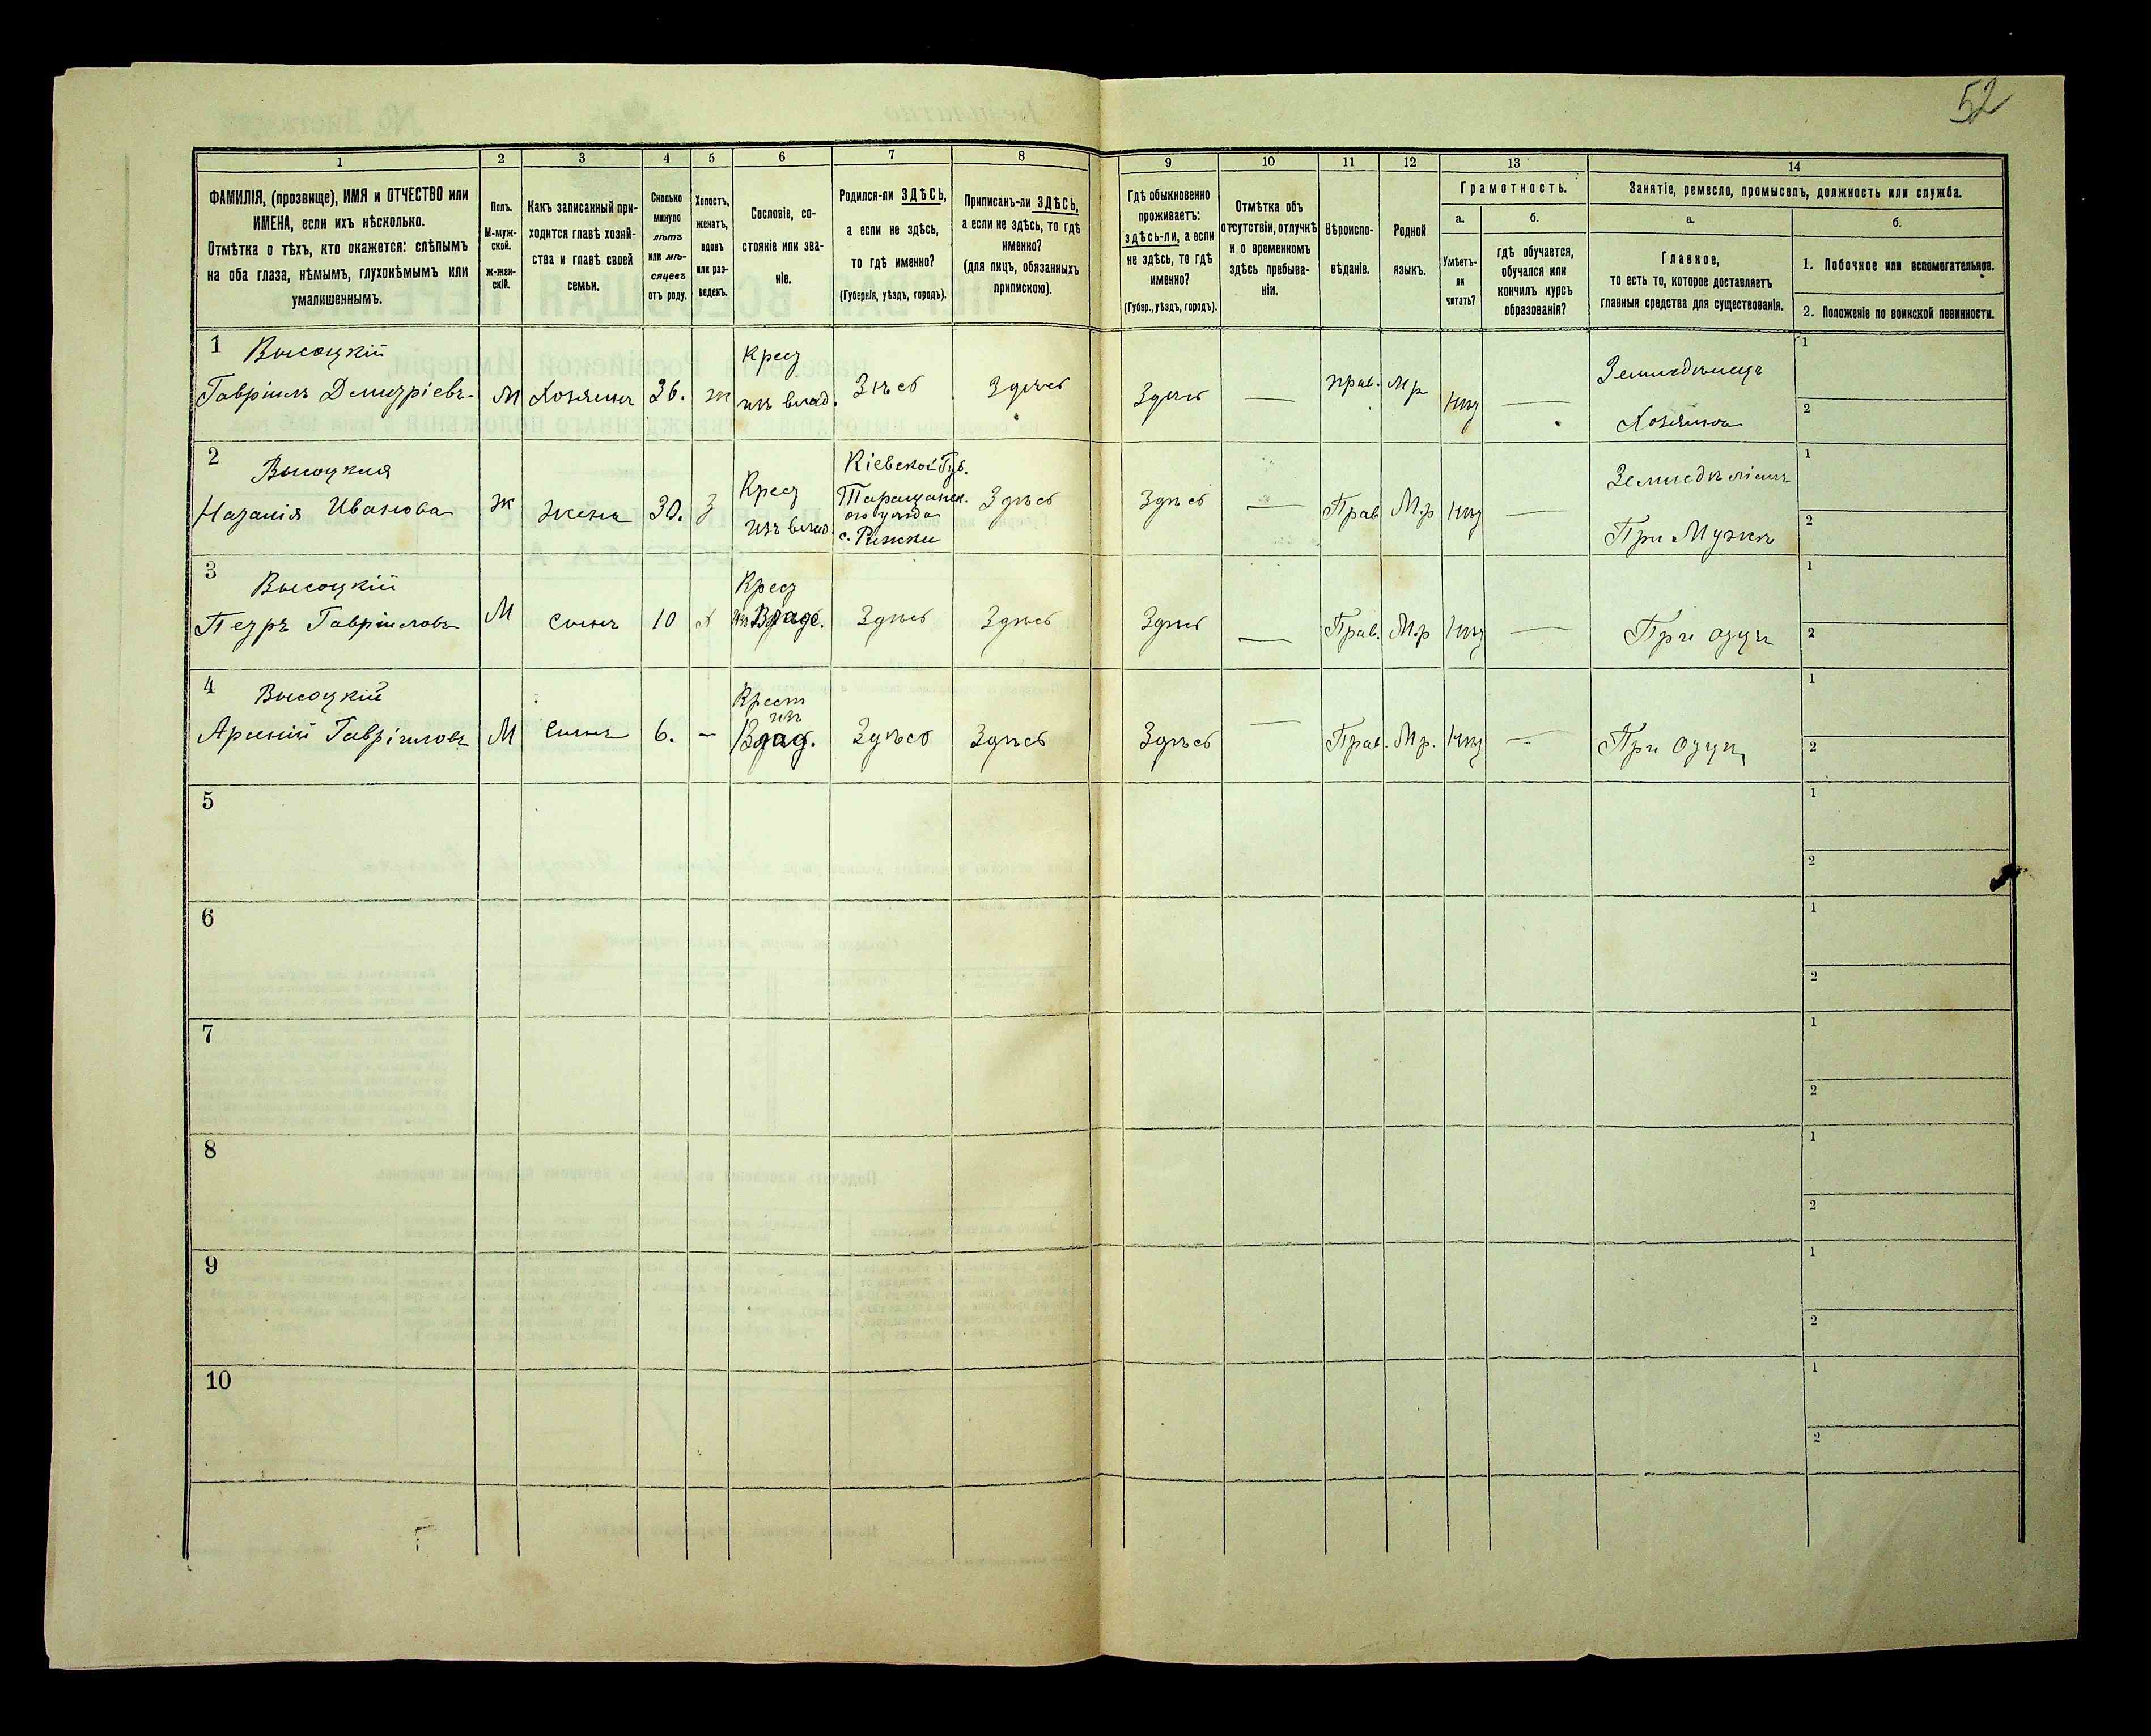 52
1 2 3 4 5 6 7 8 9 10 11 12 13 14
ФАМИЛІЯ, (прозвище), ИМЯ и ОТЧЕСТВО или
ИМЕНА, если ихъ нѣсколько.
Отмѣтка о тѣхъ, кто окажется: слѣпымъ
на оба глаза, нѣмымъ, глухонѣмымъ или
умалишеннымъ.
Полъ.
М-муж-
ской.
ж-жен-
скій.
Какъ записанный при-
ходится главѣ хозяй-
ства и главѣ своей
семьи.
Сколько
минуло
лѣтъ
или мѣ-
сяцевъ
отъ роду.
Холостъ,
женатъ,
вдовъ
или раз-
веденъ.
Сословіе, со-
стояніе или зва-
ніе.
Родился-ли ЗДѢСЬ,
а если не здѣсь,
то гдѣ именно?
(Губернія, уѣздъ, городъ).
Приписанъ-ли ЗДѢСЬ,
а если не здѣсь, то гдѣ
именно?
(для лицъ, обязанныхъ
припискою).
Гдѣ обыкновенно
проживаетъ:
здѣсь-ли, а если
не здѣсь, то гдѣ
именно?
(Губер., уѣздъ, городъ).
Отмѣтка объ
отсутствіи, отлучкѣ
и о временномъ
здѣсь пребыва-
ніи.
Вѣроиспо-
вѣданіе.
Родной
языкъ.
Грамотность.
а.
Умѣетъ-
ли
читать?
б.
гдѣ обучается,
обучался или
кончилъ курсъ
образованія?
Занятіе, ремесло, промыселъ, должность или служба.
а.
Главное,
то есть то, которое доставляетъ
главныя средства для существованія.
б.
1. Побочное или вспомогательное.
2. Положеніе по воинской повинности.
1 Высоцкій
Гавріилъ Дмитріевъ
М
Хозяинъ
36.
ж
Крест
изъ влад.
Здѣсь
Здѣсь
Здѣсь
—
прав.
Мр
Нѣт
—
Земледѣлецъ
Хозяинъ
1
2
2 Высоцкая
Наталія Иванова
Ж
Жена
30.
З
Крест
изъ влад.
Кіевской Губ.
Таращанск.
ого уѣзда
с. Рижки
Здѣсь
Здѣсь
—
Прав
М.р
Нѣт
—
При Мужѣ
1
2
3 Высоцкій
Петръ Гавріиловъ
М
Сынъ
10
Х
Крест
изъ Влад.
Здѣсь
Здѣсь
Здѣсь
—
Прав.
М.р
Нѣт
—
При отцѣ
1
2
4 Высоцкій
Арсеній Гавріиловъ
М
Сынъ
6.
—
Крест
изъ
Влад.
Здѣсь
Здѣсь
Здѣсь
—
Прав.
Мр.
Нѣт
—
При Отцѣ
1
2
5
1
2
6
1
2
7
1
2
8
1
2
9
1
2
10
1
2